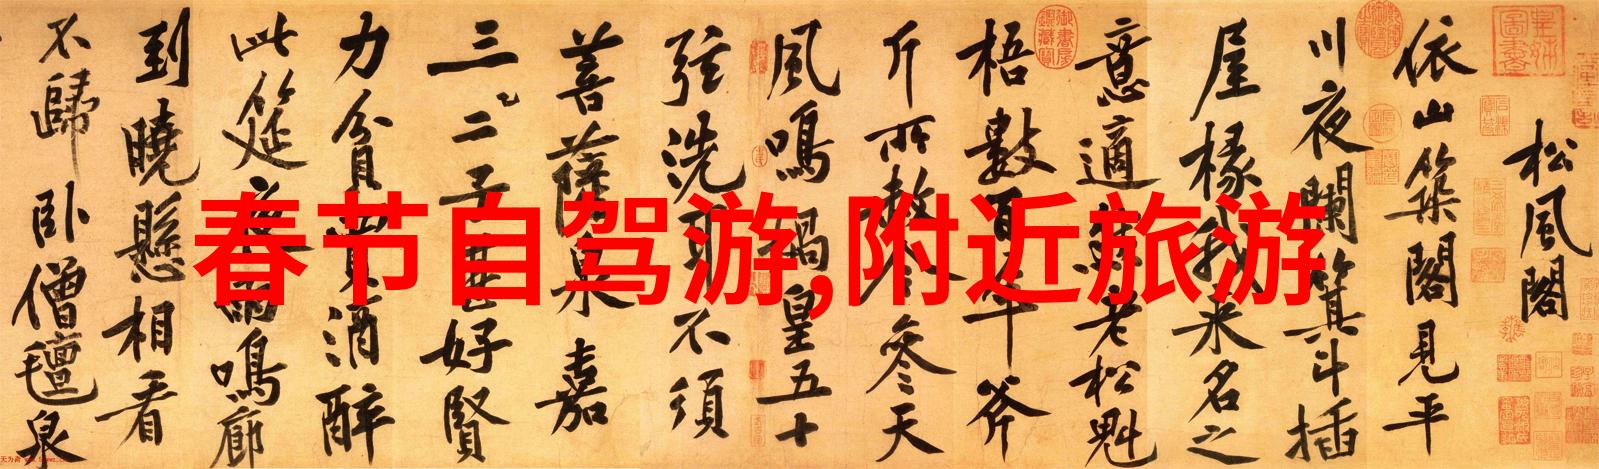 春节自驾游,附近旅游
松風閣
依山築閣見平
川夜闌箕斗插
屋椽我来名之
意適然老松魁
梧數百年斧
斤所赦今参天
風鳴媧皇五十
弦洗耳不須
菩薩泉嘉
三二子甚好賢
力貧買酒醉
此筵夜雨鳴廊
到曉懸相看
不歸卧僧氊泉
皇姊圖書
御書房鑑藏寶